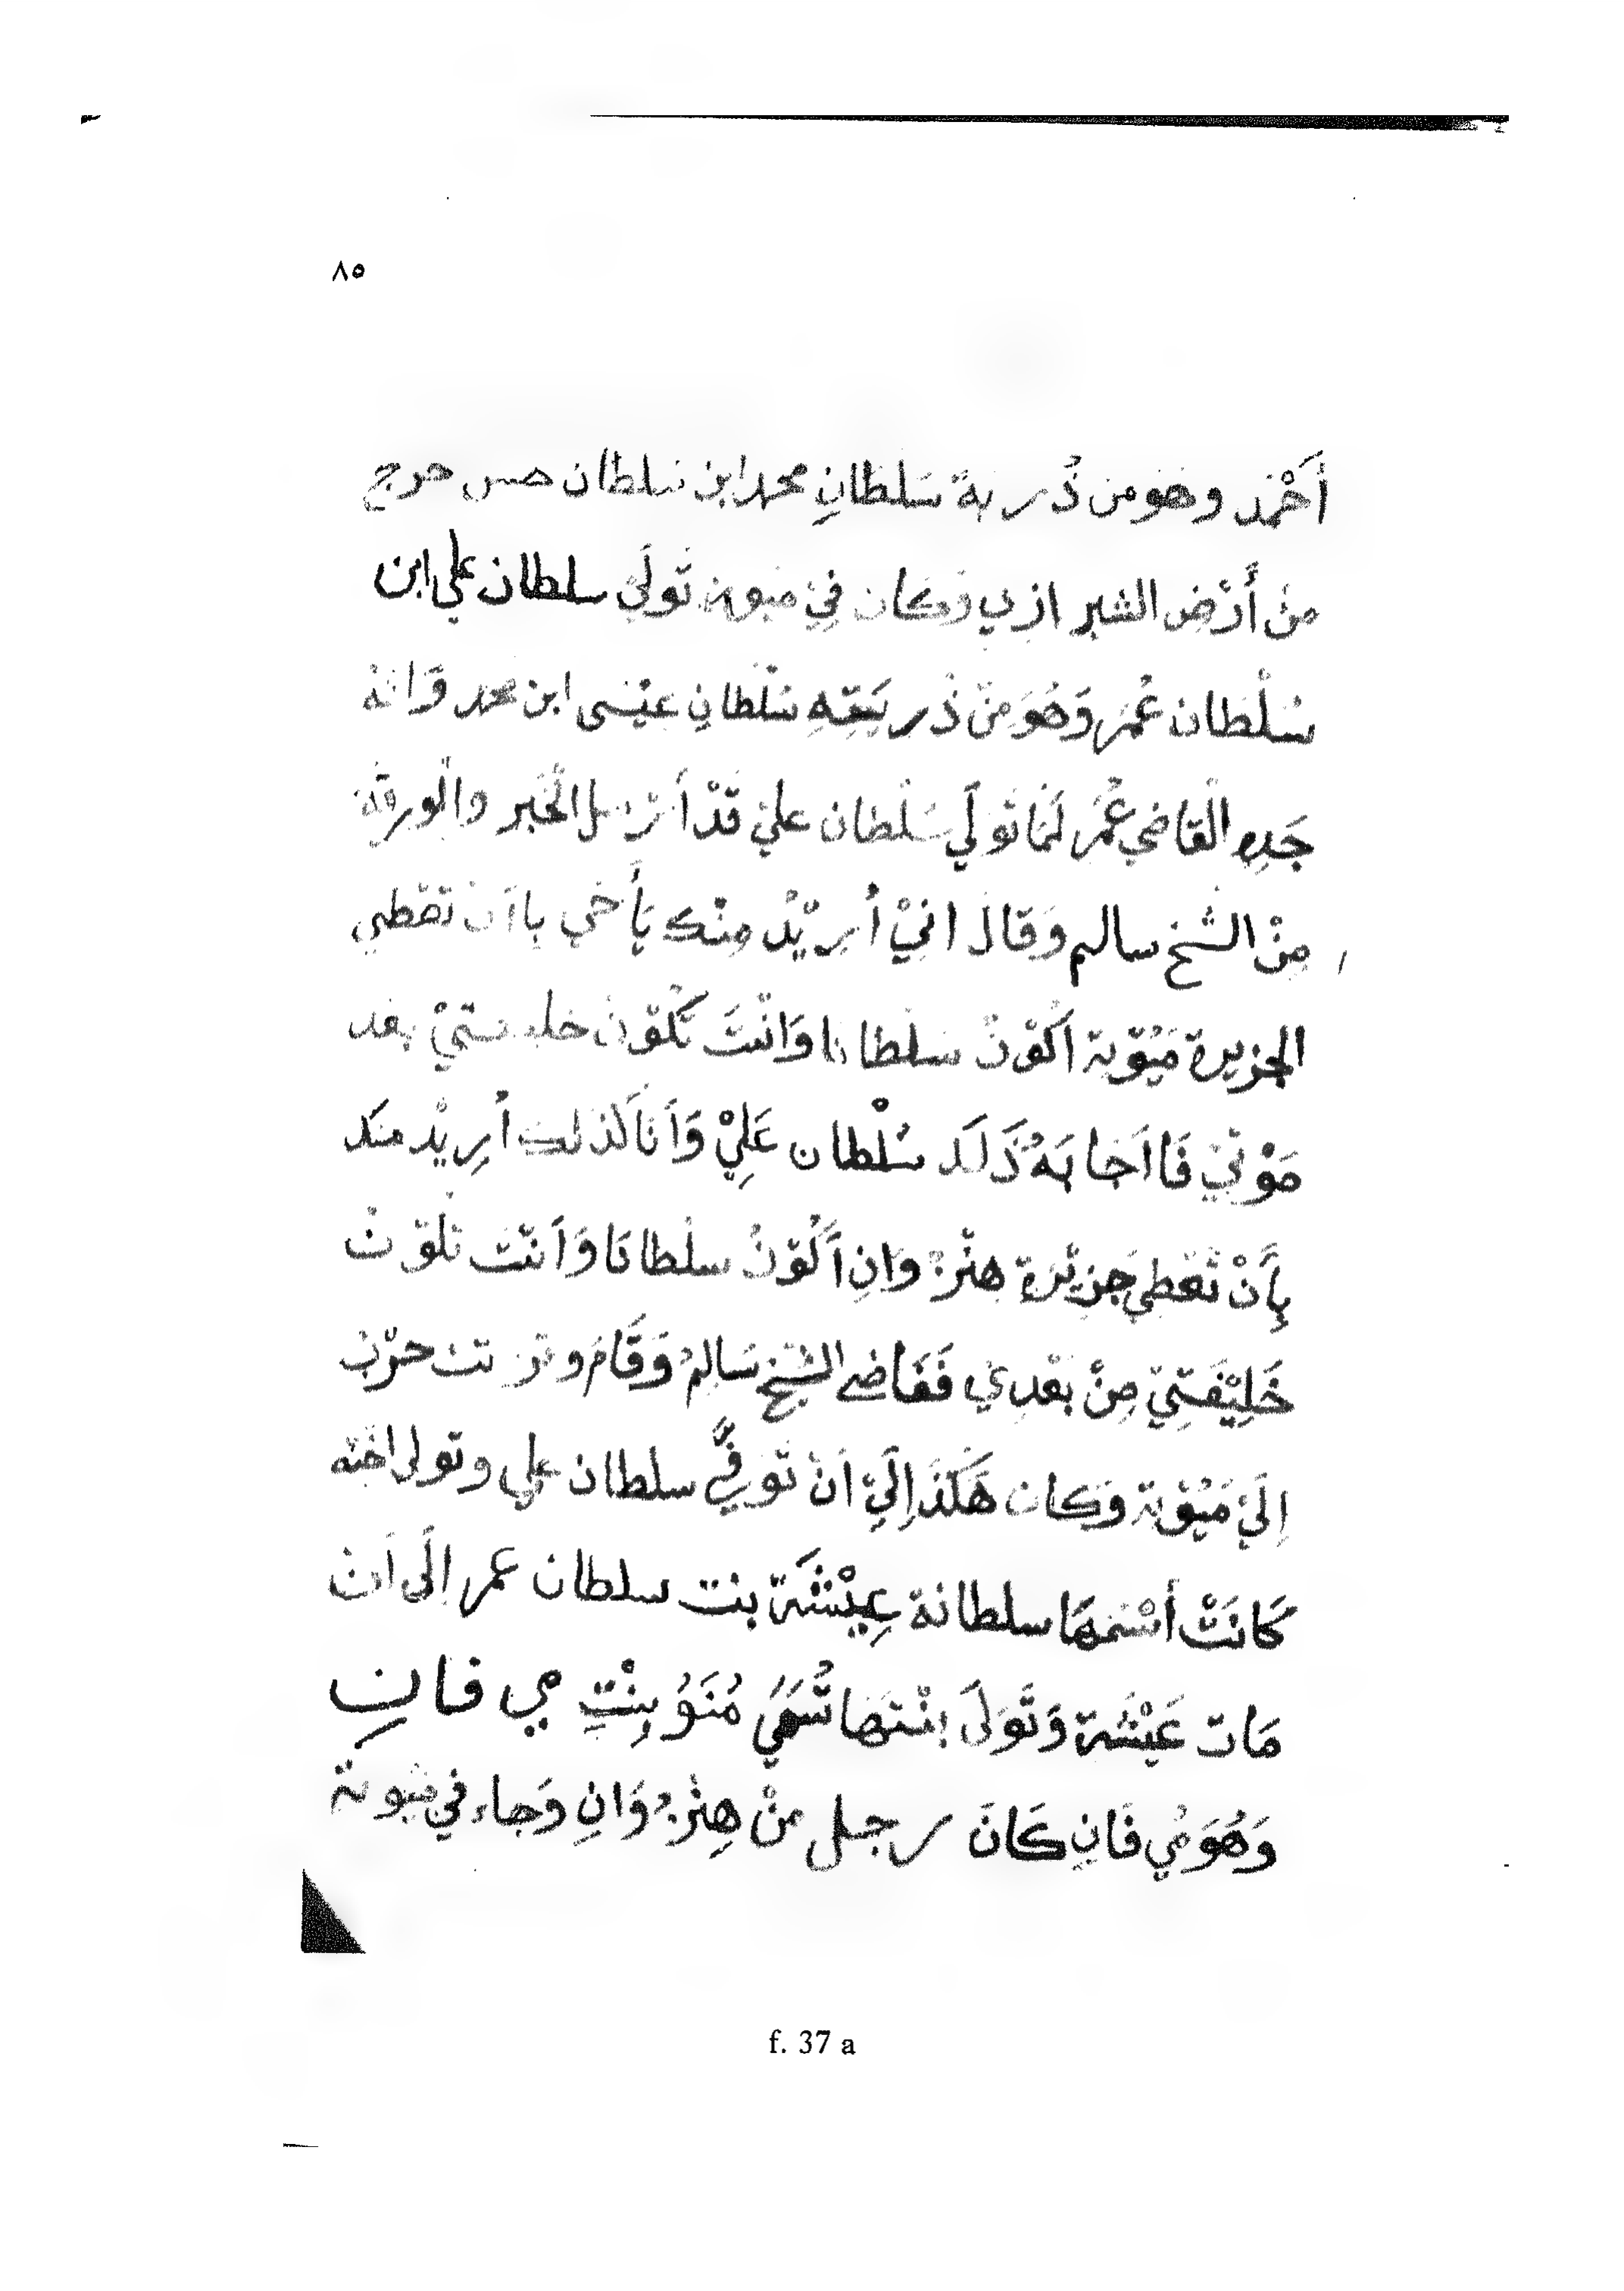 ٨٥
أَحْمَد وهو من ذُرية سَلْطانِ محمد ابن سلطان حسن خرج
مِنْ أَرْض الشيرازي وَكان فِيْ ميوة تَولَيْ سلطان علي ابن
سُلْطان عُمَر وَهُوَ مِنْ ذُريَّتِهِ سُلْطانِ عيْسى ابن محمد وَّانهُ
جَدِه الْقاضي عُمَر لَمَا تَوَلَي سَلْطان عليْ قَدْ أَرْسل الْخَبر والْورقة
مِنْ الشَّخ سالم وَقالَ انيْ أُرِيْدُ مِنْك يَأَخي بِاأَن تعْطي
الجزيرة مَيْوة اكُوْنُ سَلْطانا وَانْتَ تَكُوْنُ خليفتيْ بعْد
مَوْتِيْ فَااَجابَهُ ذَلَك سُلْطان عَلِيْ وَأَنَا كَذلك أُرِيْد منك
بِأَنْ تَعْطي جَزِيْرَة هِنْزُوَانِ أَكُوْنُ سلْطانَا وَأَنْتَ تَكُوْنُ
خَلِيْفَتِيْ مِنْ بَعْدِيْ فَغَاضي الشيخ سَالِمُ وَقَامَ وترتت حرْبُ
اِلَيْ مَيْوة وَكان هَكَذَ اِلَيْ انْ تَوَفَّيْ سلطان علي وتولى اخته
كَانَتْ أسْمهَا سلطانة عِيْشَة بنت سلطان عمر اِلَى اَن
مَات عَيْشَة وَتَوَلَى بنْتهَا تُسَمَيْ مُنَوُ بِنْتِ مي فانِ
وَهُوَ مُي فَانِ كَانَ رجل منْ هِنْزُوَانِ وَجاء في ميوة
f. 37 a